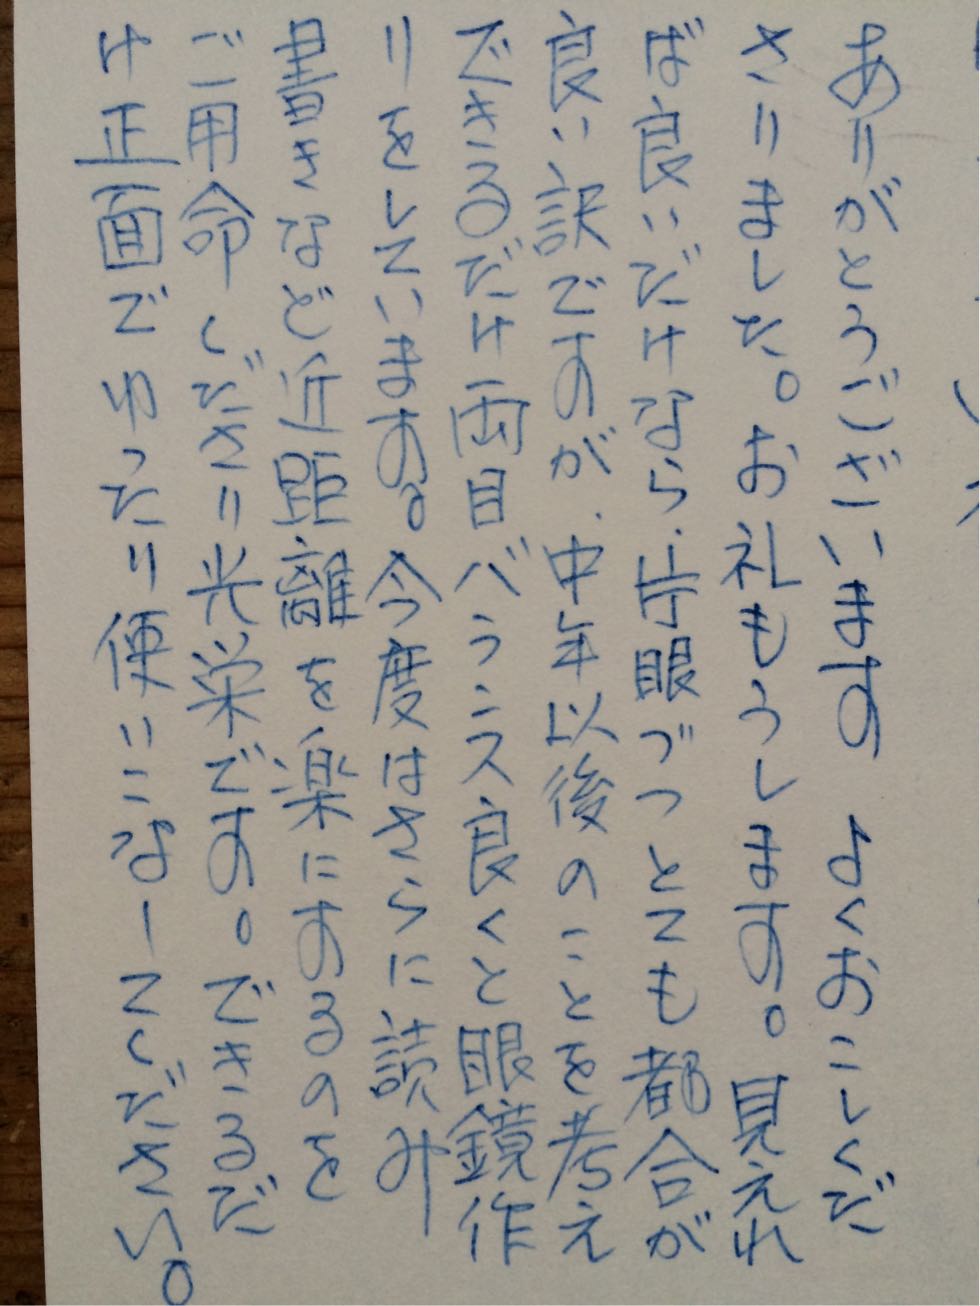 ありがとうございます よくおこしくだ
さりました。お礼もうします。見えれ
ば良いだけなら、片眼づつとても都合が
良い訳ですが、中年以後のことを考え
できるだけ両目バランス良くと眼鏡作
りをしています。今度はさらに読み
書きなど近距離を楽にするのを
ご用命くださり光栄です。できるだ
け正面でゆったり便いこなしてください。